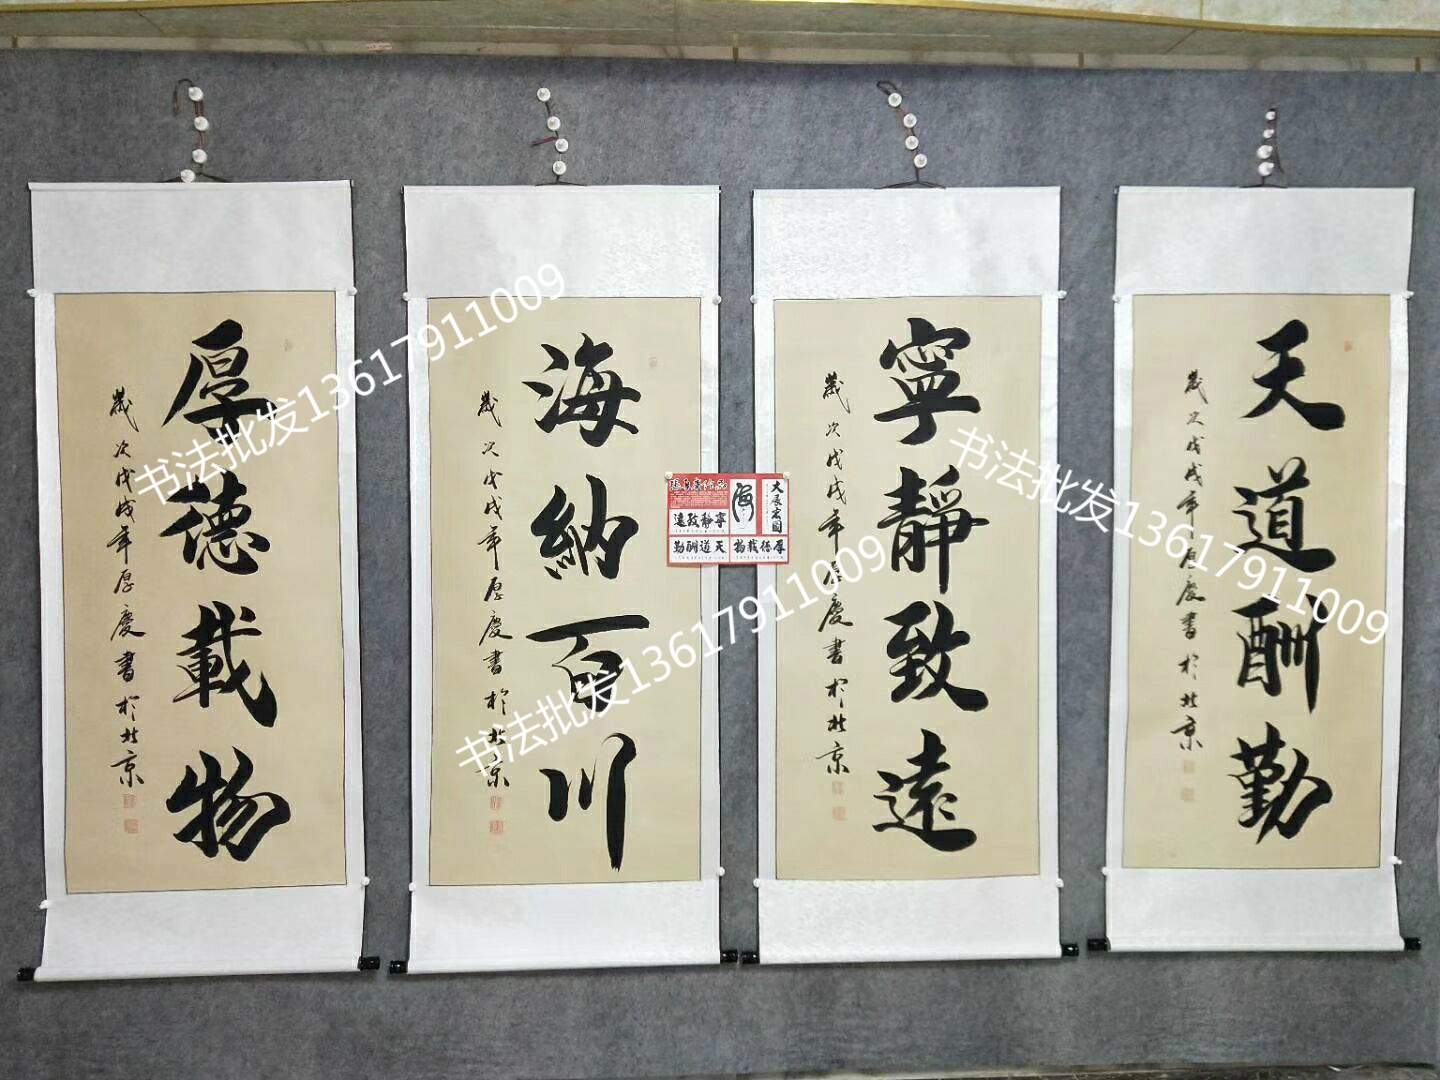 厚德載物
歲次戊戌年厚慶書於北京
海納百川
歲次戊戌年厚慶書於北京
寧靜致遠
歲次戊戌年厚慶書於北京
天道酬勤
歲次戊戌年厚慶書於北京
海
大展宏图
寧靜致遠
天道酬勤
厚德載物
书法批发13617911009
书法批发13617911009
书法批发13617911009